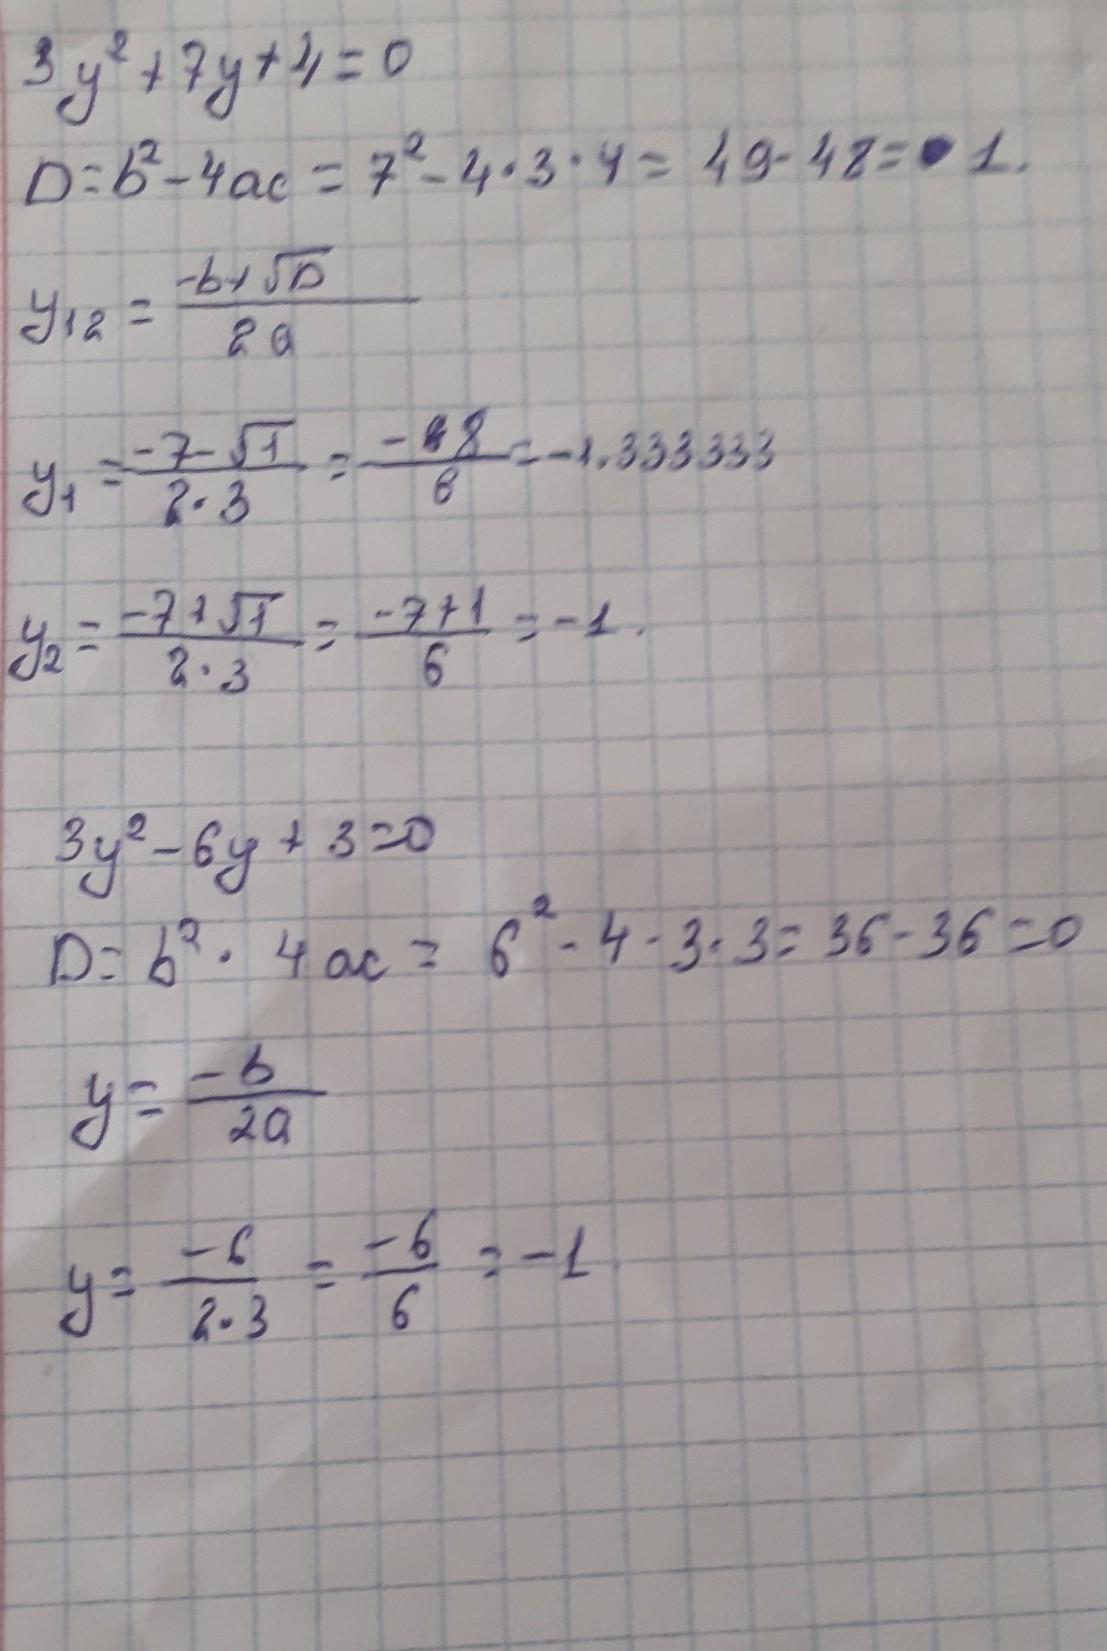 3y² + 7y + 4 = 0
D = b² - 4ac = 7² - 4 · 3 · 4 = 49 - 48 = 1.
y₁₂ = (-b + √D) / 2a
y₁ = (-7 - √1) / (2 · 3) = -8 / 6 = -1.333333
y₂ = (-7 + √1) / (2 · 3) = (-7 + 1) / 6 = -1.
3y² - 6y + 3 = 0
D = b² · 4ac = 6² - 4 · 3 · 3 = 36 - 36 = 0
y = -b / 2a
y = -6 / (2 · 3) = -6 / 6 = -1